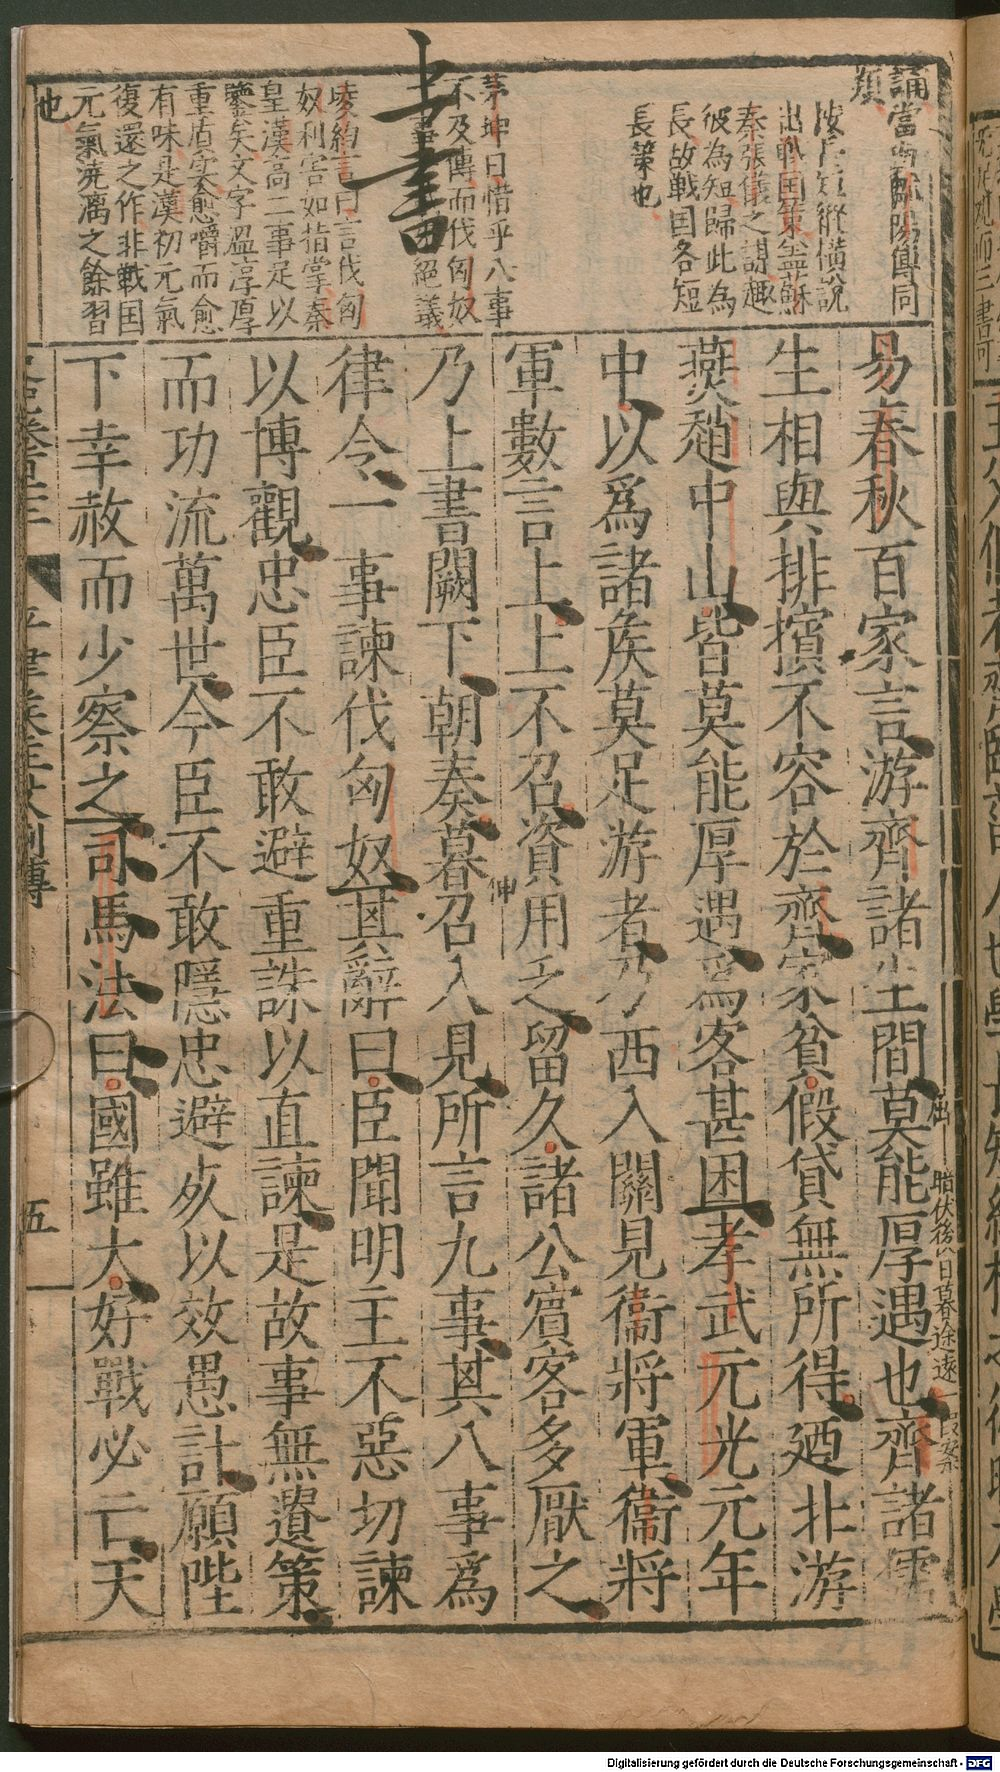 易春秋百家言游齊諸生間莫能厚遇也齊諸儒
生相與排擯不容於齊家貧假貸無所得廼北游
燕趙中山皆莫能厚遇爲客甚困孝武元光元年
中以爲諸矦莫足游者乃西入關見衞將軍衞將
軍數言上上不召資用乏留久諸公賓客多厭之
乃上書闕下朝奏暮召入見所言九事其八事爲
律令一事諫伐匈奴其辭曰臣聞明主不惡切諫
以博觀忠臣不敢避重誅以直諫是故事無遺策
而功流萬世今臣不敢隱忠避死以效愚計願陛
下幸赦而少察之司馬法曰國雖大好戰必亡天
誦當
傳同
類
長短縱橫說
出戰国策盖蘇
秦張儀之謀趣
彼為短歸此為
長故戦国各短
長策也
上書
茅坤曰惜乎八事
不及傳而伐匈奴
絕議
凌約言曰言伐匈
奴利害如指掌秦
皇漢高二事足以
鑒矣文字溫淳厚
重質実愈嚼而愈
有味是漢初元氣
復還之作非戰囯
元氣澆漓之餘習
也
伸
出
暗伏後以日暮途遠
叚案
平津矦主父列傳
五
Digitalisierung gefördert durch die Deutsche Forschungsgemeinschaft - DFG